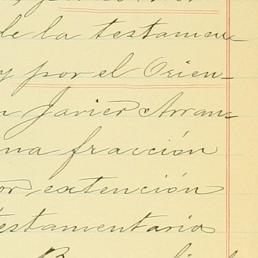 de la testamen-
y por el Orien-
n Javier Arran-
na fracción
or extención
testamentaria